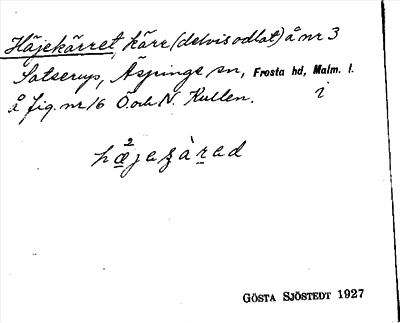 Häjekärret, kärr (delvis odlat) å nr 3
Satserup, Äspinge sn, Frosta hd, Malm. l.
å fig. nr 16 Ö och N. Kullen. i
GÖSTA SJÖSTEDT 1927